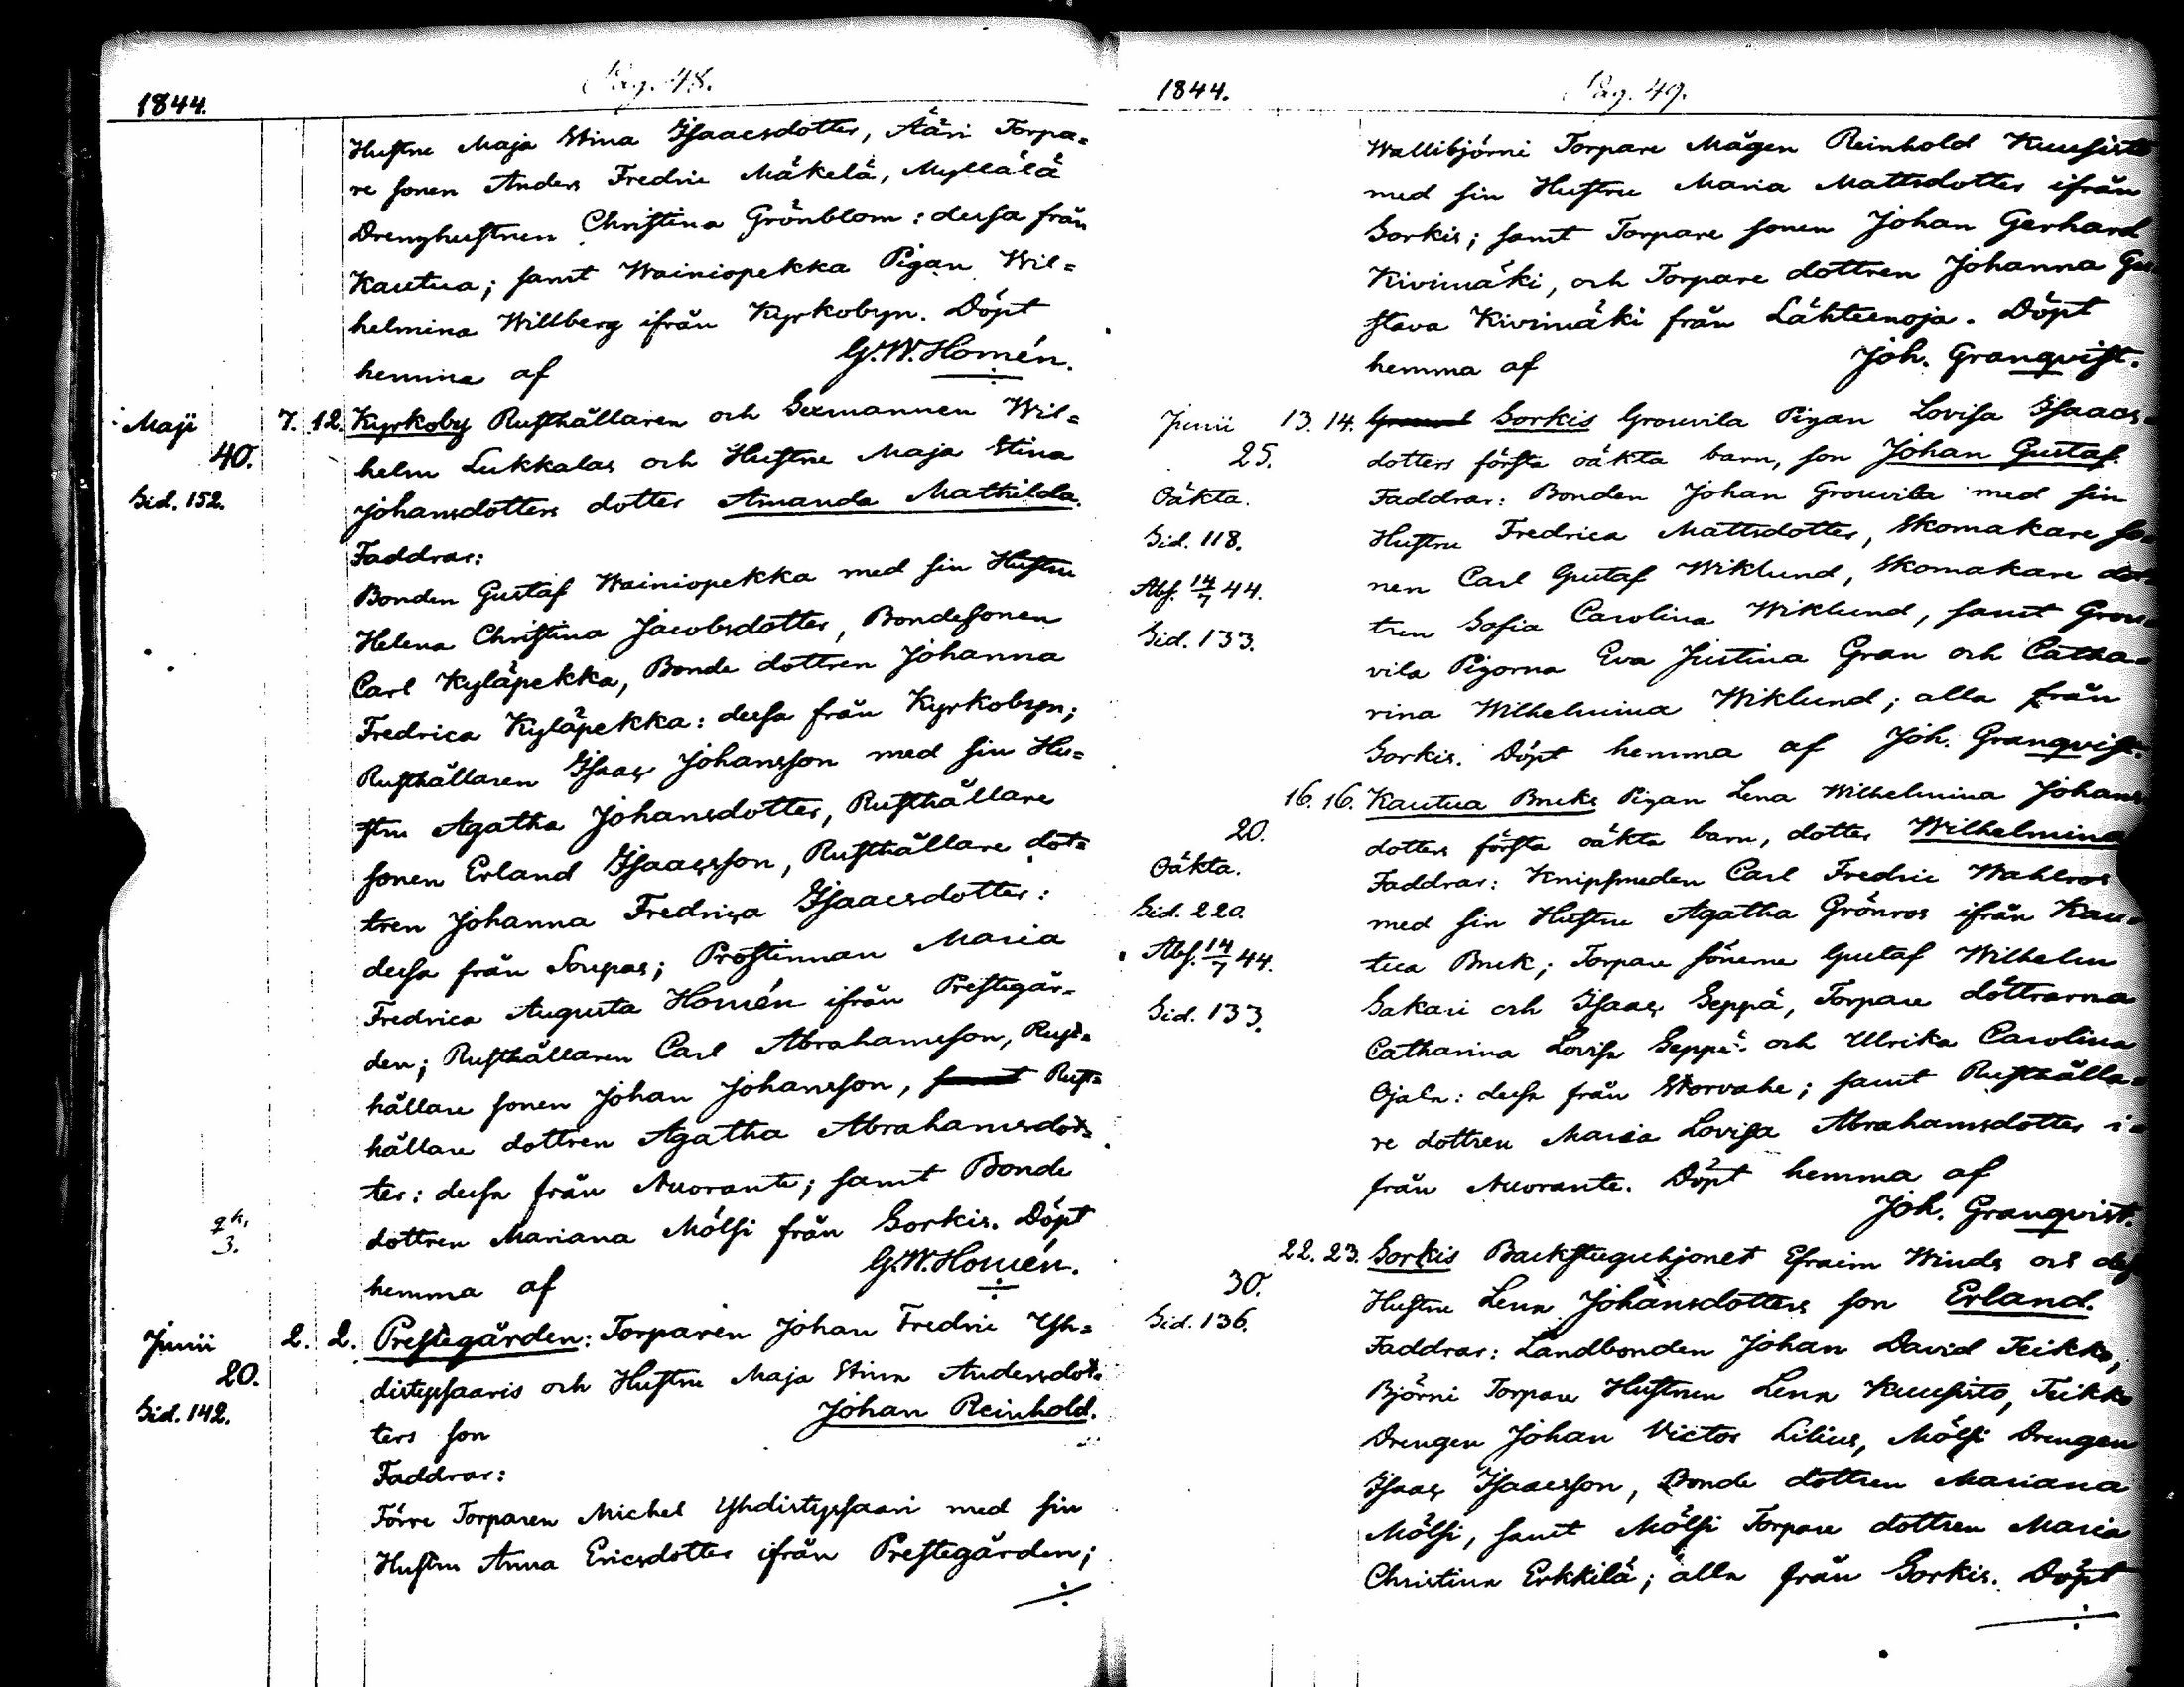 1844.
Pag. 48.
Hustru Maja Stina Isaacsdotter, Ääri Torpa=
re sonen Anders Fredric Mäkelä, Myllälä
Drenghustrun Christina Grönblom: dessa från
Kautua; samt Wainiopekka Pigan Wil=
helmina Willberg ifrån Kyrkobyn. Döpt
hemma af G.W. Homén.
Maji 7. 12. Kyrkoby Rusthållaren och Sexmannen Wil=
40.
helm Lukkalas och Hustru Maja Stina
Sid. 152.
Johansdotters dotter Amanda Mathilda.
Faddrar:
Bonden Gustaf Wainiopekka med sin Hustru
Helena Christina Jacobsdotter, Bondesonen
Carl Kyläpekka, Bonde dottren Johanna
Fredrica Kyläpekka: dessa från Kyrkobyn;
Rusthållaren Isaac Johansson med sin Hu=
stru Agatha Johansdotter, Rusthållare
sonen Erland Isaacsson, Rusthållare dot=
tren Johanna Fredrica Isaacsdotter:
dessa från Soupas; Prostinnan Maria
Fredrica Augusta Homén ifrån Prestegår=
den; Rusthållaren Carl Abrahamsson, Rust=
hållare sonen Johan Johansson, samt Rust=
hållare dottren Agatha Abrahamsdot=
ter: dessa från Nuorante; samt Bonde
dottren Mariana Mölsi från Sorkis. Döpt
3.
hemma af G.W. Homén.
Junii 2. 2. Prestegården: Torparen Johan Fredric Yh=
20.
distyssaaris och Hustru Maja Stina Andersdot=
Sid. 142.
ters son Johan Reinhold.
Faddrar:
Förre Torparen Michel Yhdistyssaari med sin
Hustru Anna Ericsdotter ifrån Prestegården;
1844.
Pag. 49.
Wallibjörni Torpare Mågen Reinhold Kuusisto
med sin Hustru Maria Mattsdotter ifrån
Sorkis; samt Torpare sonen Johan Gerhard
Kivimäki, och Torpare dottren Johanna Gu
stava Kivimäki från Lähteenoja. Döpt
hemma af Joh. Granqvist.
Junii 13. 14. Sorkis Grouvila Pigan Lovisa Isaacs=
25.
dotters första oäkta barn, son Johan Gustaf.
Oäkta.
Faddrar: Bonden Johan Grouvila med sin
Sid. 118.
Hustru Fredrica Mattsdotter, Skomakare so=
Abs. 14/7 44.
nen Carl Gustaf Wiklund, Skomakare dot=
Sid. 133.
tren Sofia Carolina Wiklund, samt Grou=
vila Pigorna Eva Justina Gran och Catha=
rina Wilhelmina Wiklund; alla från
Sorkis. Döpt hemma af Joh. Granqvist.
16. 16. Kautua Bruks Pigan Lena Wilhelmina Johans
20.
dotters första oäkta barn, dotter Wilhelmina
Oäkta.
Faddrar: Knipsmeden Carl Fredric Wahlroos
Sid. 220.
med sin Hustru Agatha Grönroos ifrån Kau=
Abs. 14/7 44.
tua Bruk; Torpare sönerne Gustaf Wilhelm
Sid. 133.
Sakari och Isaac Seppä, Torpare döttrarna
Catharina Lovisa Seppä och Ulrika Carolina
Ojala: dessa från Storvahe; samt Rusthålla=
re dottren Maria Lovisa Abrahamsdotter i=
från Nuorante. Döpt hemma af
Joh. Granqvist.
22. 23. Sorkis Backstuguhjonet Efraim Winds och dess
30.
Hustru Lena Johansdotters son Erland.
Sid. 136.
Faddrar: Landbonden Johan David Teikko,
Björni Torpare Hustrun Lena Kuusisto, Teikko
Drengen Johan Victor Lilius, Mölsi Drengen
Isaac Isaacsson, Bonde dottren Mariana
Mölsi, samt Mölsi Torpare dottren Maria
Christina Erkkilä; alla från Sorkis. Döpt